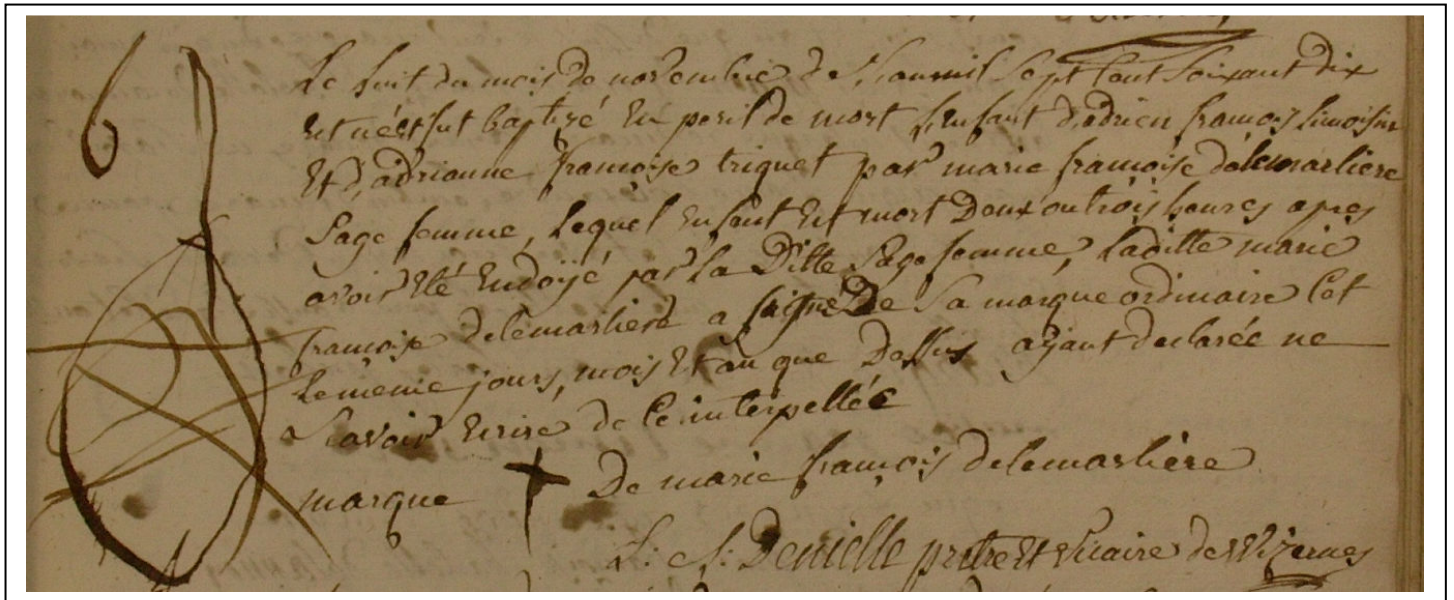 Le huit du mois de novembre de L'an mil sept cent soixant dix
est né et fut baptizé en peril de mort L'enfant d'adrien françois limoisin
et d'adrianne françoise triquet par marie françoise delemarliere
sage femme, lequel enfant est mort deux ou trois heures apres
avoir eté endoyé par la ditte sage femme, laditte marie
françoise delemarliere a signé de sa marque ordinaire cet
le meme jours, mois et an que dessus ayant declarée ne
scavoir ecrire de ce interpellée
marque De marie françois delemarlière
L: J: Denielle prêtre et vicaire de Wizernes